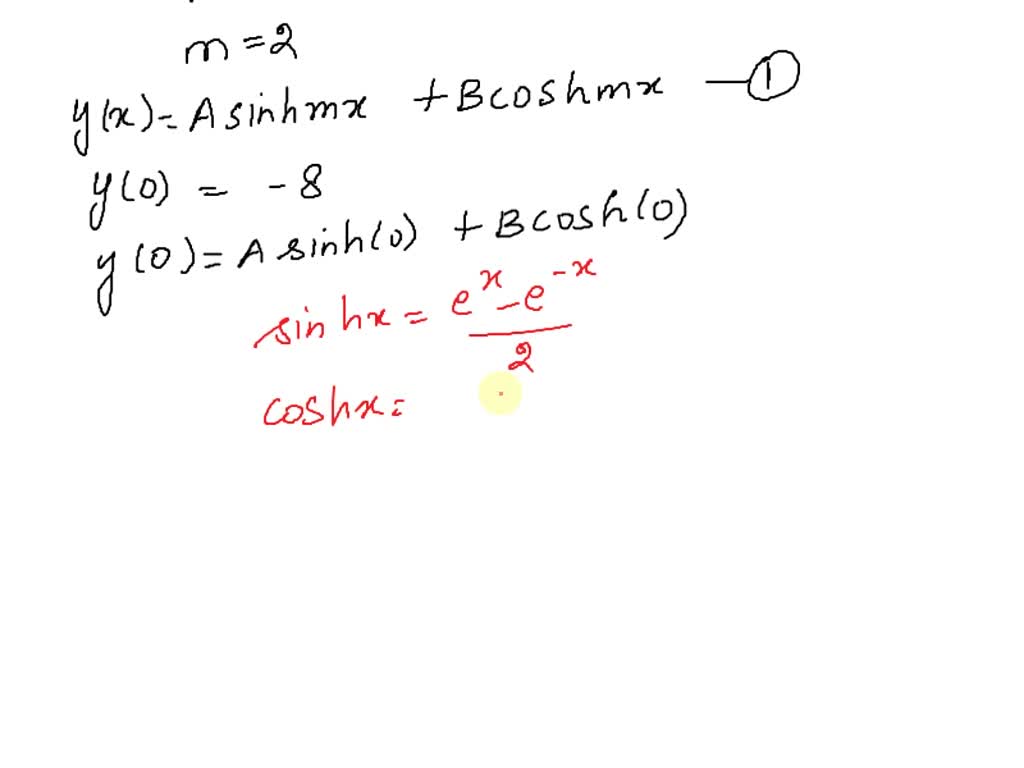 m = 2
y(x) = A sinh mx + B cosh mx — ①
y(0) = - 8
y(0) = A sinh(0) + B cosh(0)
sin hx = e^x - e^-x / 2
coshx =